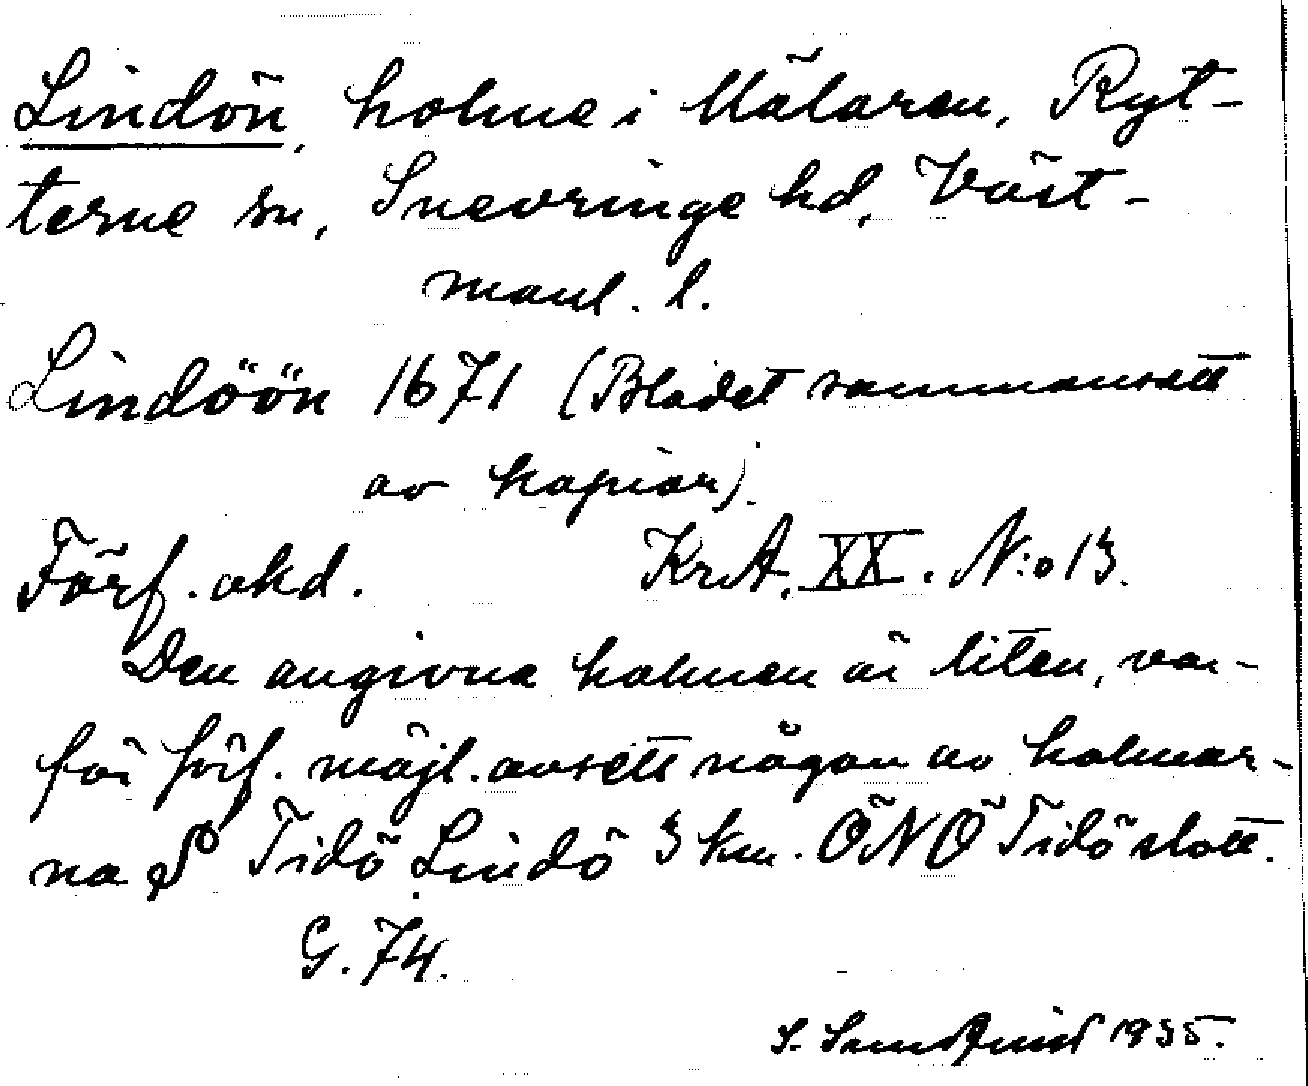 Lindön, holme i Mälaren, Ryt-
terne sn, Snevringe hd, Väst-
manl. l.
Lindöön 1671 (Bladet sammansatt
av kopior).
Förf. okd. KrA. XX. N:o 13.
Den angivna holmen är liten, var-
för förf. möjl. avsett någon av holmar-
na Tidö Lindö 3 km. ÖNÖ Tidö slott.
G. 74.
S. Sundquist 1935.